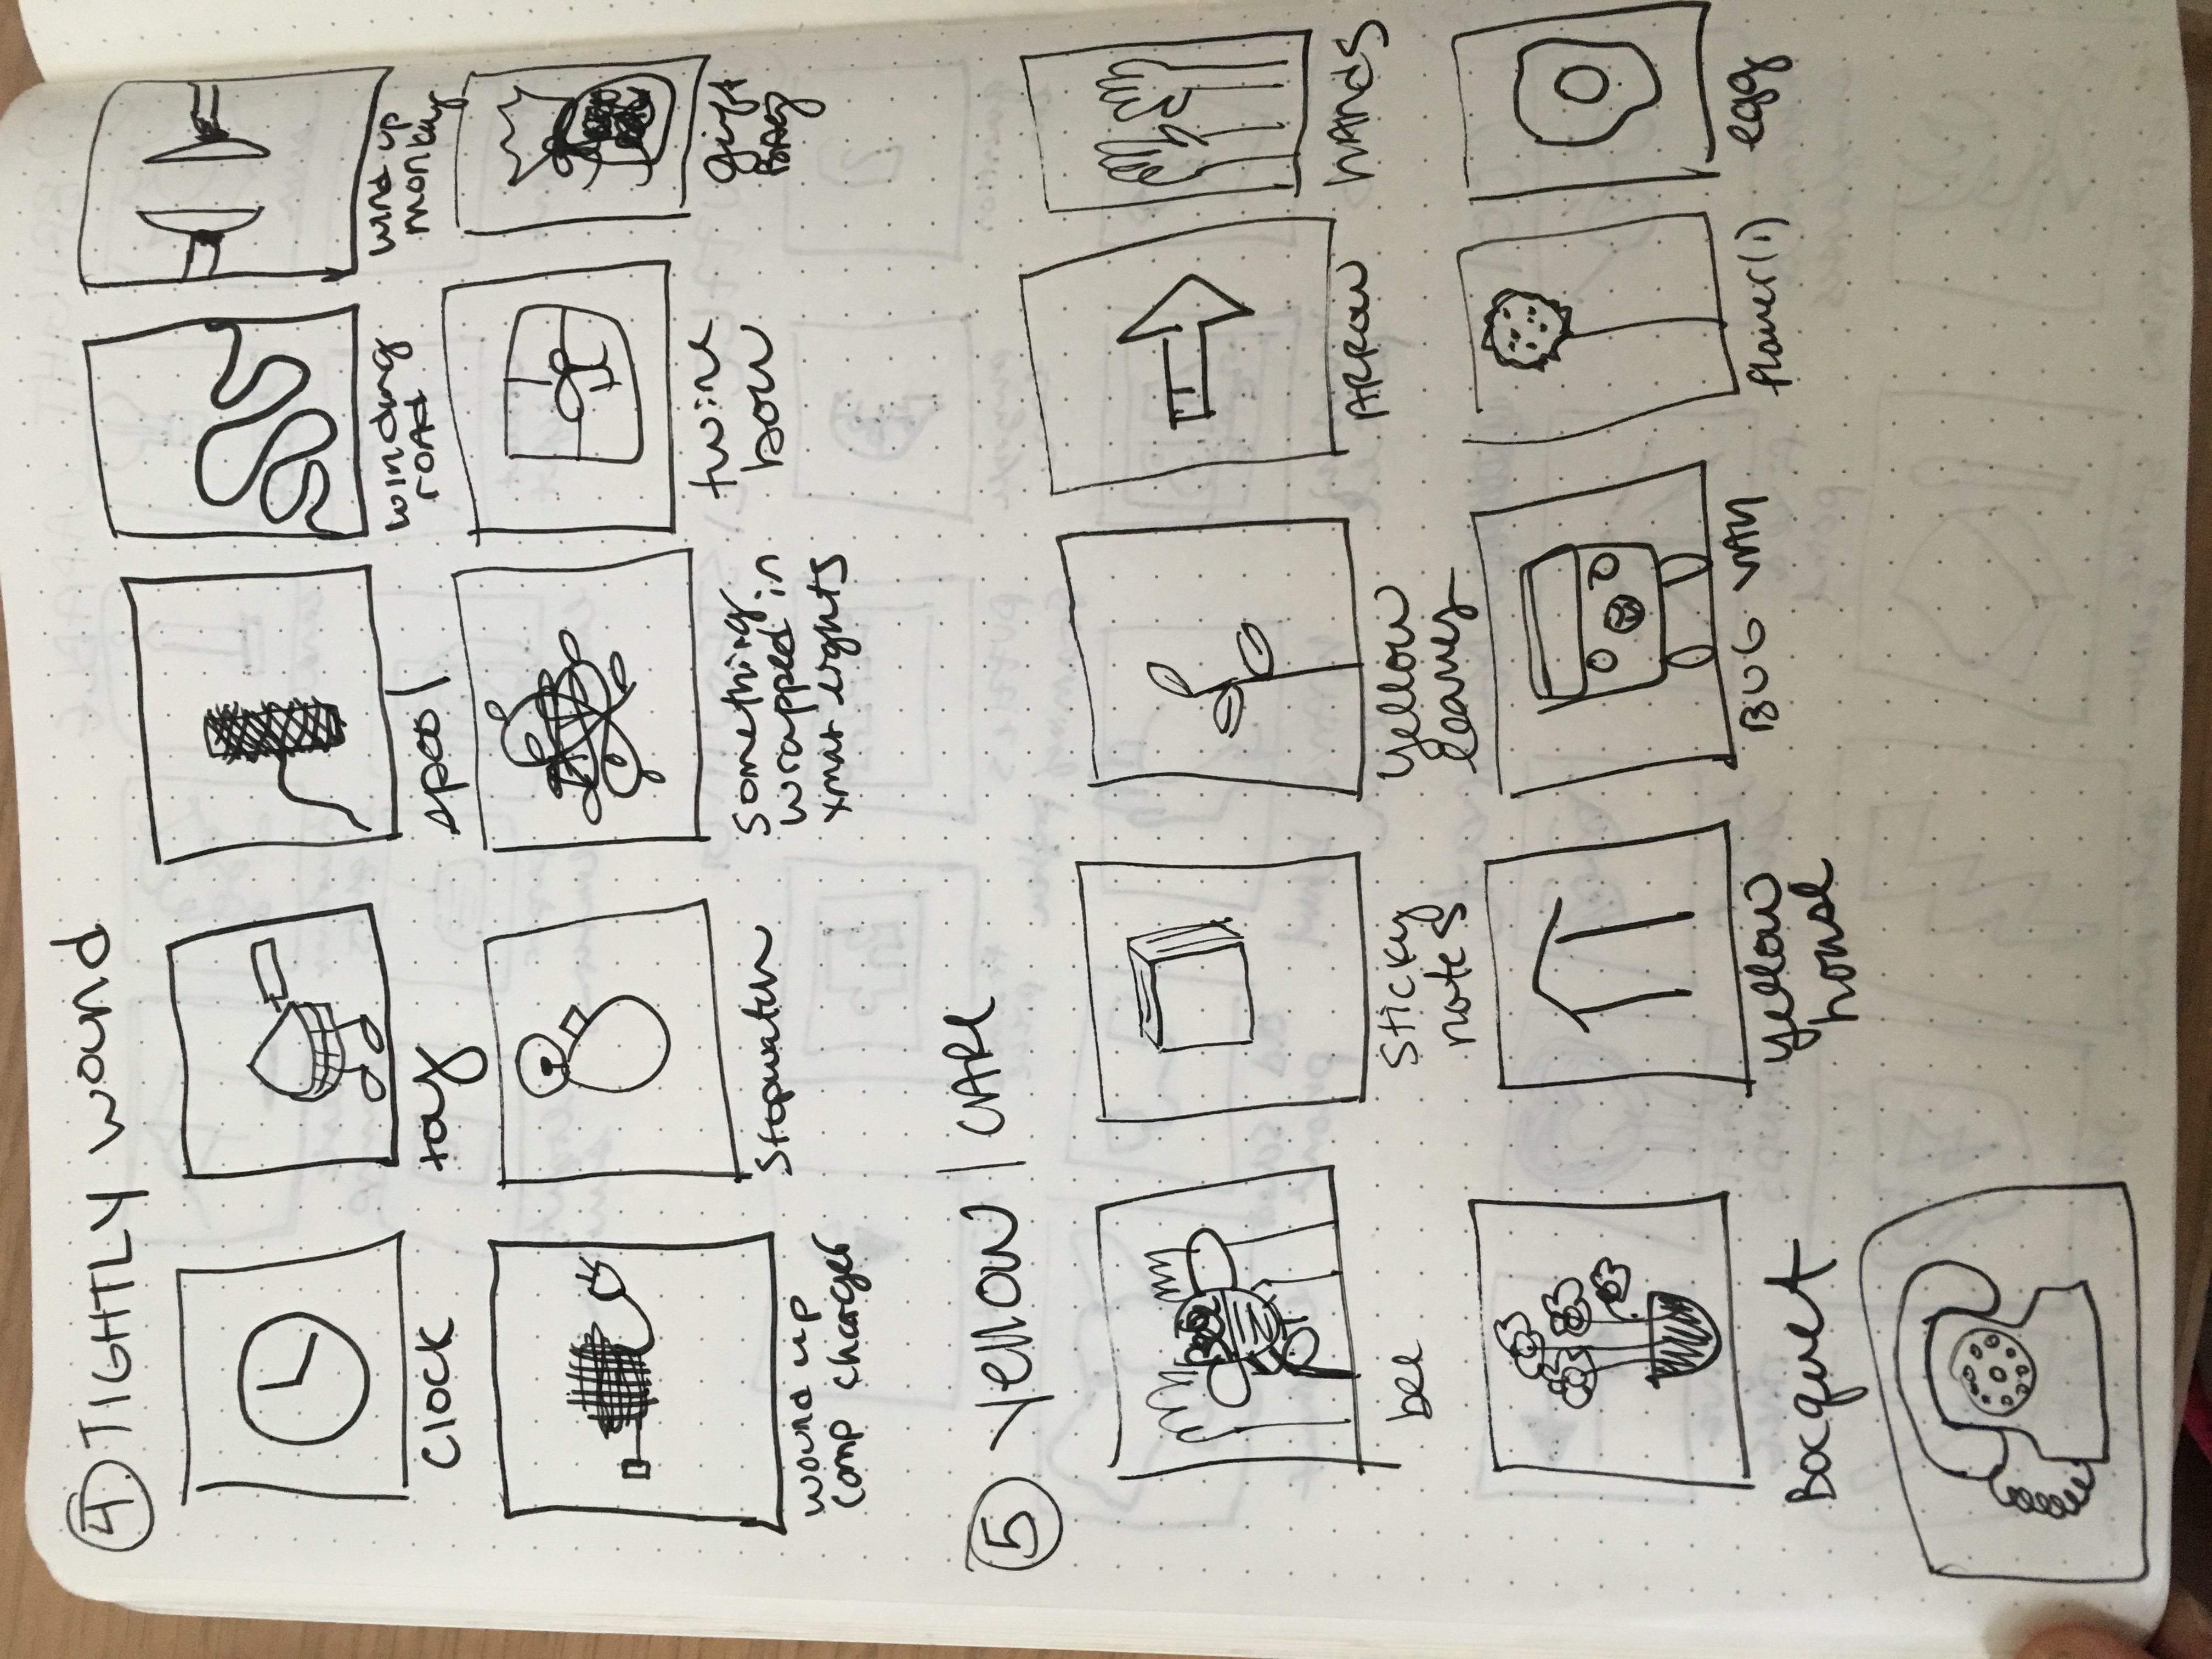 4 TIGHTLY wound
Clock
toy
spool
winding
road
wind up
monkey
wound up
comp charger
Stopwatch
Something
wrapped in
xmas lights
twine
bow
gift
BAG
5 Yellow / CARE
bee
Sticky
notes
yellow
leaves
ARROW
hANdS
Bocquet
yellow
house
BUG VAN
flower(1)
egg